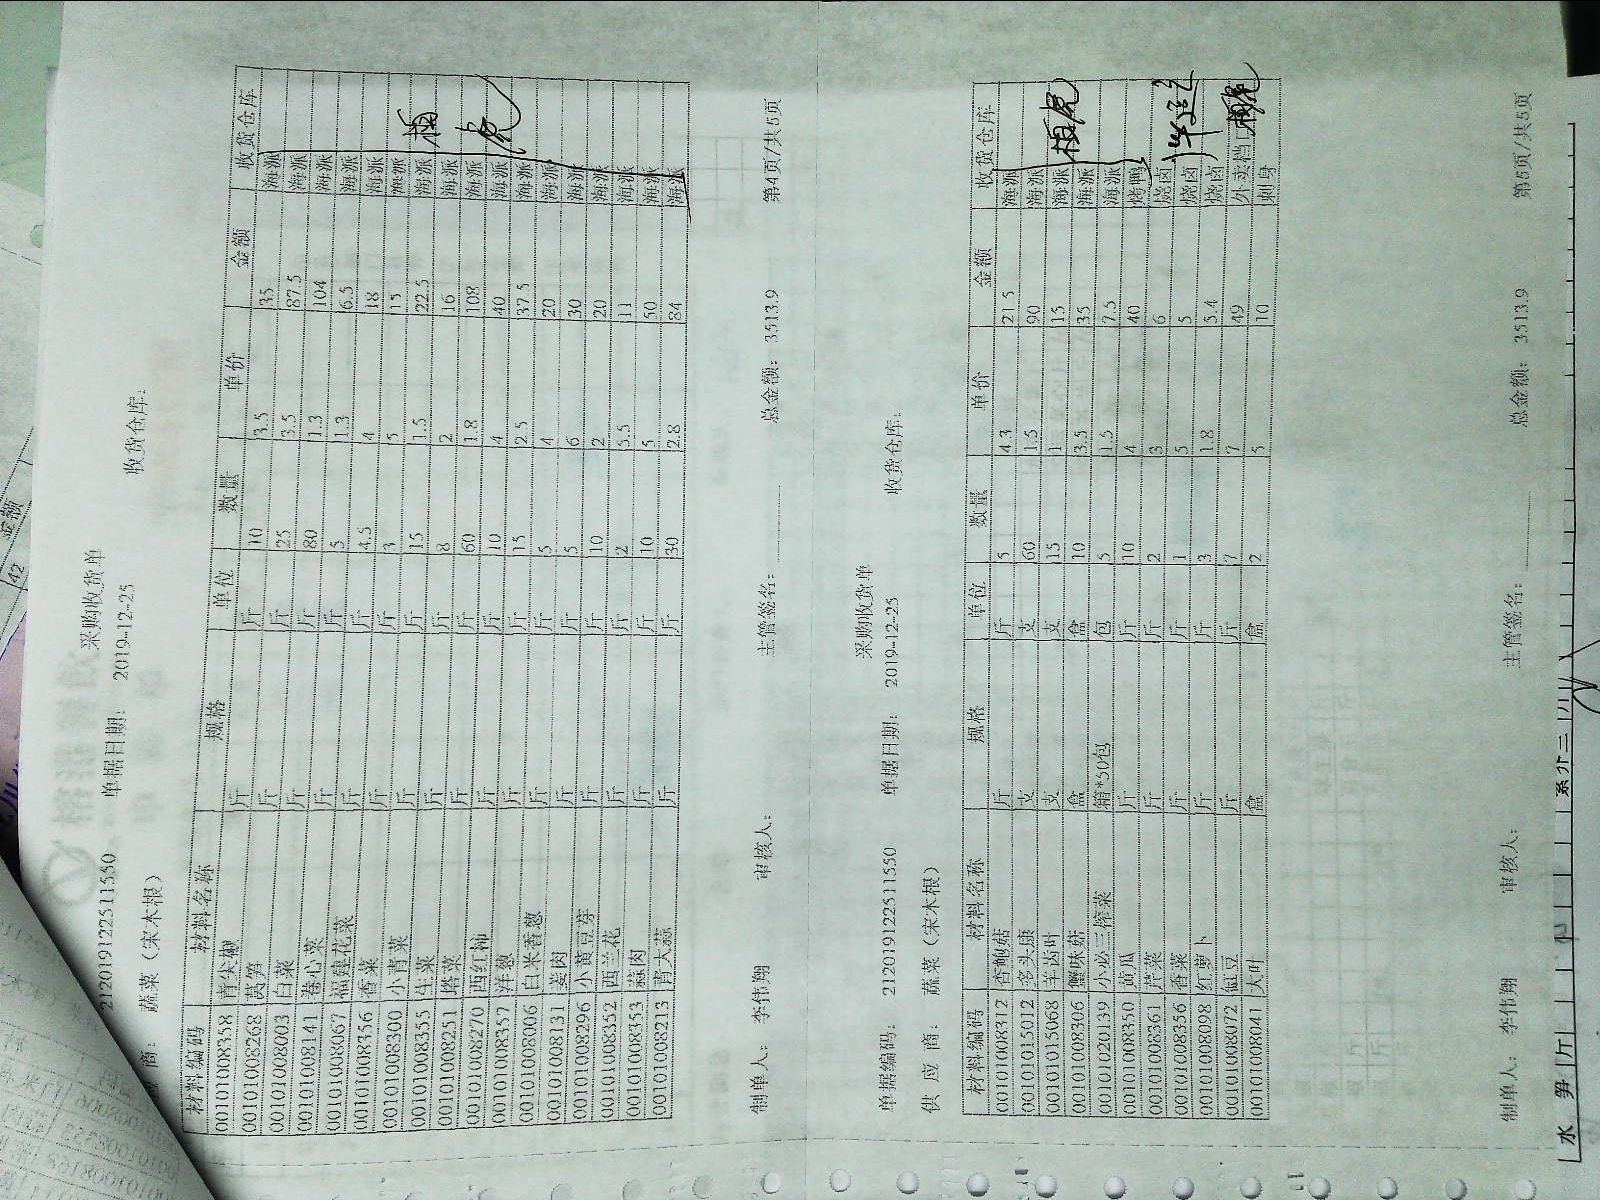 采购收货单
212019122511550 单据日期: 2019-12-25 收货仓库:
商: 蔬菜（宋木根）
材料编码 材料名称 规格 单位 数量 单价 金额 收货仓库
00101008358 青尖椒 斤 斤 10 3.5 35 海派
00101008268 莴笋 斤 斤 25 3.5 87.5 海派
00101008003 白菜 斤 斤 80 1.3 104 海派
00101008141 卷心菜 斤 斤 5 1.3 6.5 海派
00101008067 福建花菜 斤 斤 4.5 4 18 海派
00101008356 香菜 斤 斤 3 5 15 海派
00101008300 小青菜 斤 斤 15 1.5 22.5 海派
00101008355 生菜 斤 斤 8 2 16 海派
00101008251 塔菜 斤 斤 60 1.8 108 海派
00101008270 西红柿 斤 斤 10 4 40 海派
00101008357 洋葱 斤 斤 15 2.5 37.5 海派
00101008006 白米香葱 斤 斤 5 4 20 海派
00101008131 姜肉 斤 斤 5 6 30 海派
00101008296 小黄豆芽 斤 斤 10 2 20 海派
00101008352 西兰花 斤 斤 2 5.5 11 海派
00101008353 蒜肉 斤 斤 10 5 50 海派
00101008213 青大蒜 斤 斤 30 2.8 84 海派
制单人: 李伟翔 审核人: 主管签名: 总金额: 3513.9 第4页/共5页
采购收货单
单据编码: 212019122511550 单据日期: 2019-12-25 收货仓库:
供应商: 蔬菜（宋木根）
材料编码 材料名称 规格 单位 数量 单价 金额 收货仓库
00101008312 杏鲍菇 斤 斤 5 4.3 21.5 海派
00101015012 多头康 支 支 60 1.5 90 海派
00101015068 羊齿叶 支 支 15 1 15 海派
00101008306 蟹味菇 盒 盒 10 3.5 35 海派
00101020139 小必三榨菜 箱*50包 包 5 1.5 7.5 海派
00101008350 黄瓜 斤 斤 10 4 40 烤鸭
00101008361 芹菜 斤 斤 2 3 6 烧卤
00101008356 香菜 斤 斤 1 5 5 烧卤
00101008098 红萝卜 斤 斤 3 1.8 5.4 烧卤
00101008072 豇豆 斤 斤 7 7 49 外卖档口
00101008041 大叶 盒 盒 2 5 10 刺身
制单人: 李伟翔 审核人: 主管签名: 总金额: 3513.9 第5页/共5页